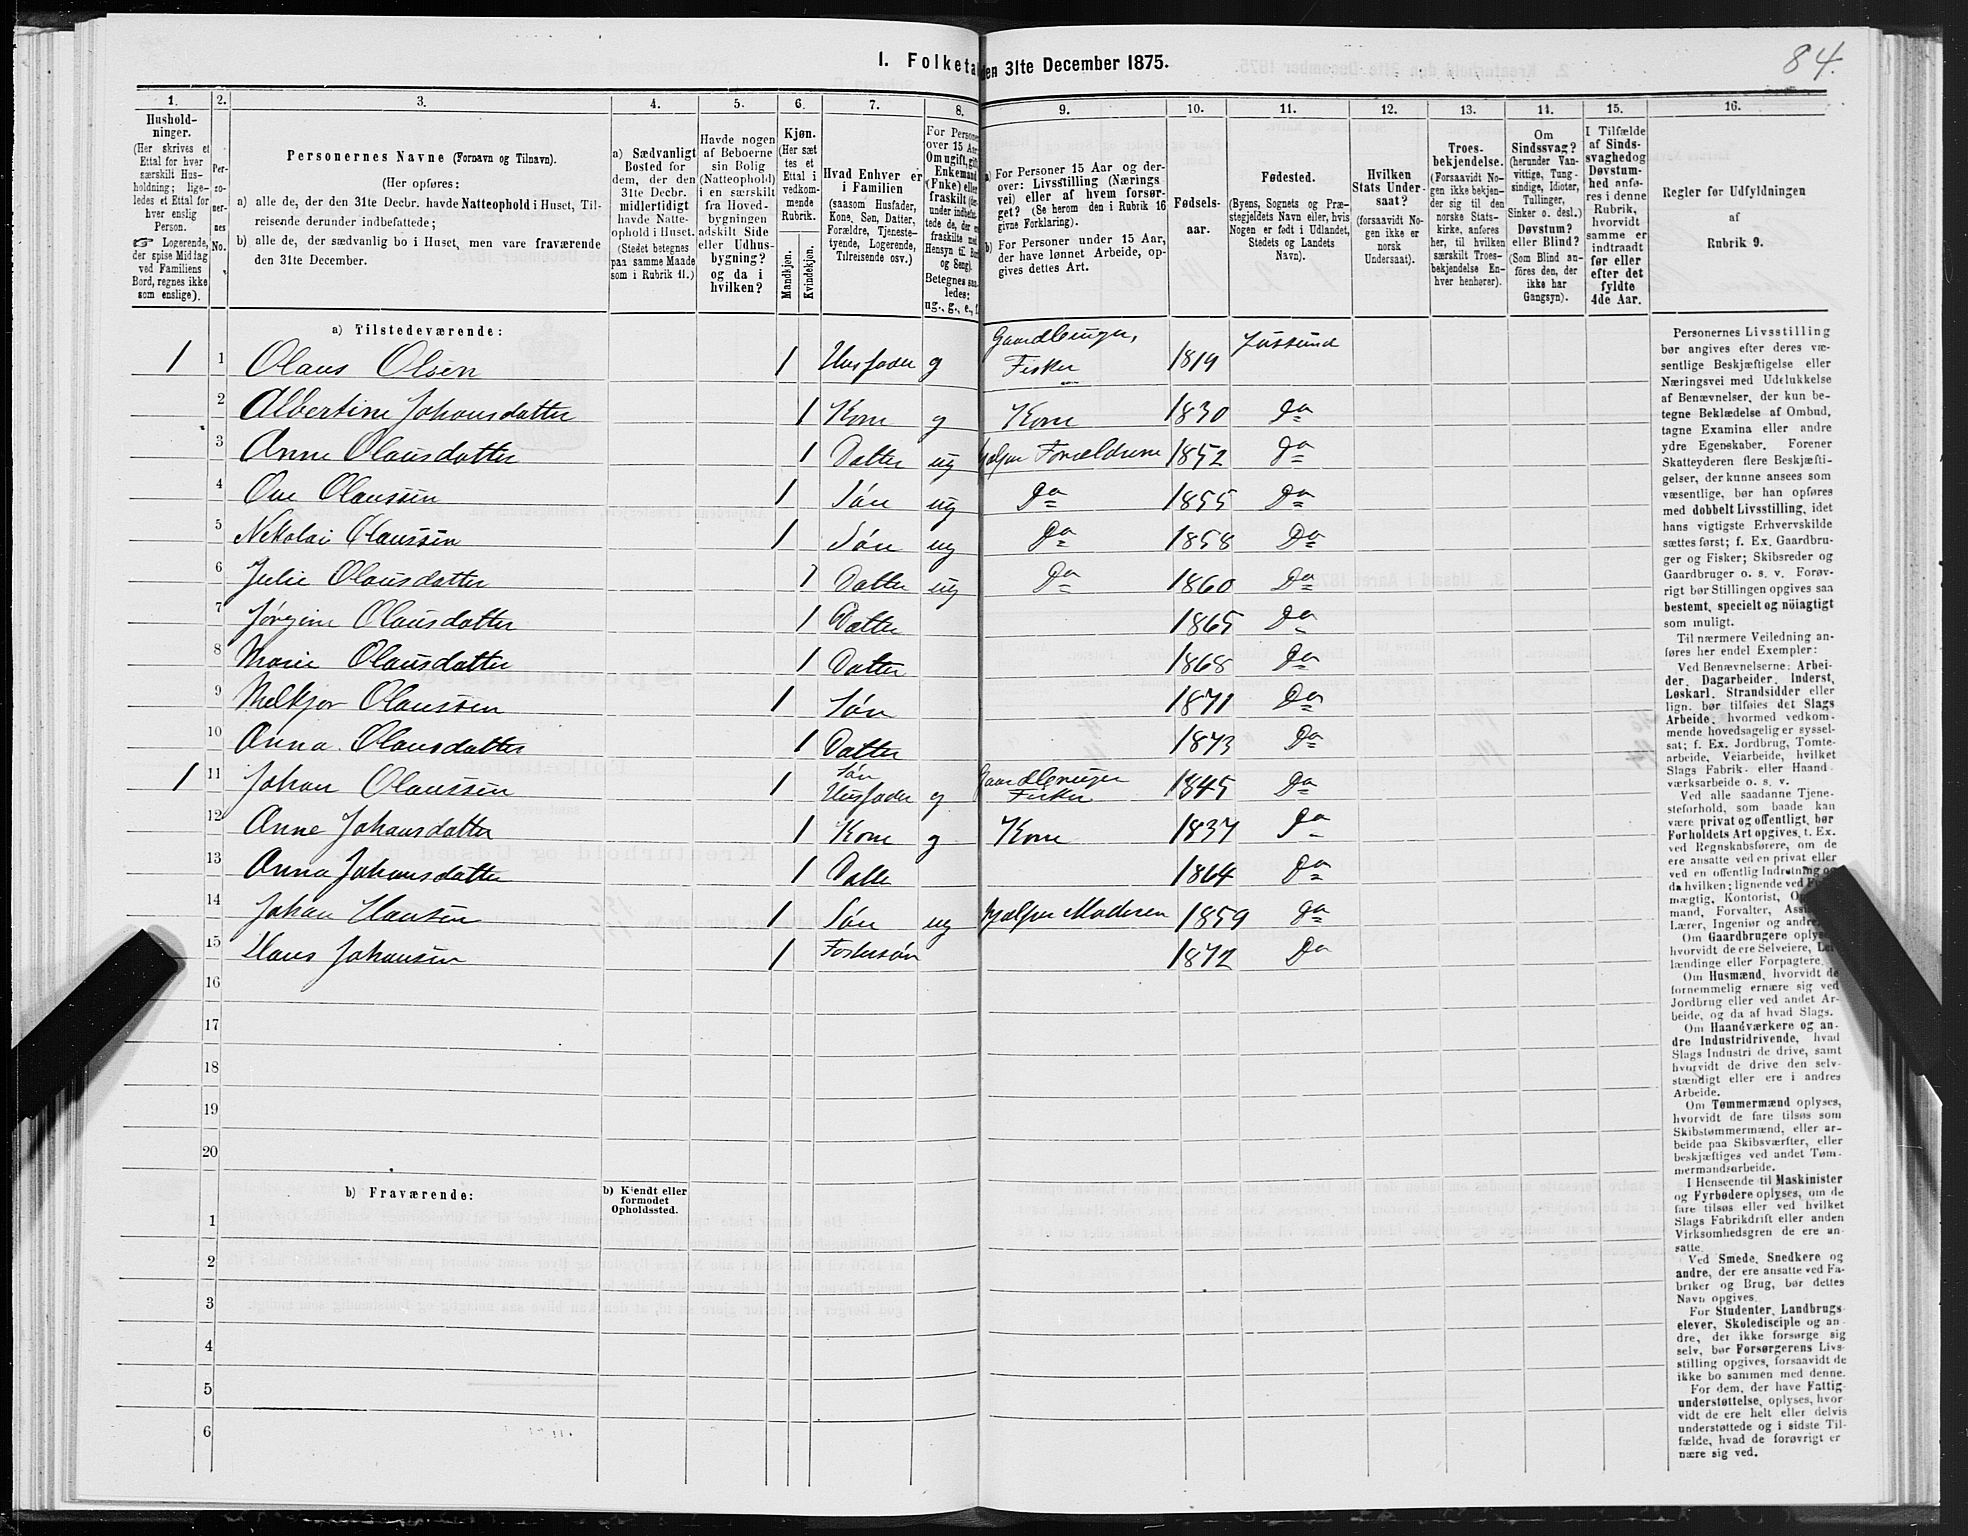 84.
1. Folketa den 31te December 1875.
1. 2. 3. 4. 5. 6. 7. 8. 9. 10. 11. 12. 13. 14. 15. 16.
Hushold-
ninger.
(Her skrives et
Ettal for hver
særskilt Hus-
holdning; lige-
ledes et Ettal for
hver enslig
Person.
☞ Logerende,
der spise Middag
ved Familiens
Bord, regnes ikke
som enslige).
Per-
so-
ner-
nes
No.
Personernes Navne (Fornavn og Tilnavn).
(Her opføres:
a) alle de, der den 31te Decbr. havde Natteophold i Huset, Til-
reisende derunder indbefattede;
b) alle de, der sædvanlig bo i Huset, men vare fraværende
den 31te December.
a) Sædvanligt
Bosted for
dem, der den
31te Decbr.
midlertidigt
havde Natte-
ophold i Huset.
(Stedet betegnes
paa samme Maade
som i Rubrik 11.)
Havde nogen
af Beboerne
sin Bolig
(Natteophold)
i en særskilt
fra Hoved-
bygningen
adskilt Side
eller Udhus-
bygning?
og da i
hvilken?
Kjøn.
(Her sæt
tes et
Ettal i
vedkom-
mende
Rubrik.
Mandkjøn.
Kvindekjøn.
Hvad Enhver er
i Familien
(saasom Husfader,
Kone, Søn, Datter,
Forældre, Tjeneste-
tyende, Logerende,
Tilreisende osv.)
For Persone
over 15 Aar
Om ugift, gift
Enkemand
(Enke) eller
fraskilt
Betegnes saa-
ledes:
ug., g., e., f.
a) For Personer 15 Aar og der-
over: Livsstilling (Nærings
vei) eller af hvem forsør-
get? (Se herom den i Rubrik 16
givne Forklaring).
b) For Personer under 15 Aar,
der have lønnet Arbeide, op-
gives dettes Art.
Fødsels-
aar.
Fødested.
(Byens, Sognets og Præ-
stegjeldets Navn eller, hvis
Nogen er født i Udlandet,
Stedets og Landets
Navn).
Hvilken
Stats Under-
saat?
(forsaavidt No-
gen ikke er
norsk
Undersaat).
Troes-
bekjendelse.
(Forsaavidt No-
gen ikke bekjen-
der sig til den
norske Stats-
kirke, anføres
her, til hvilken
særskilt Troes-
bekjendelse En-
hver henhører).
Om
Sindssvag?
(herunder Van-
vittige, Tung-
sindige, Idioter,
Tullinger,
Sinker o. desl.)
Døvstum?
eller Blind?
(Som Blind an-
føres den, der
ikke har
Gangsyn).
I Tilfælde
af Sinds-
svaghedog
Døvstum-
hed anfø-
res i denne
Rubrik,
hvorvidt
samme er
indtraadt
før eller
efter det
fyldte
4de Aar.
Regler før Udfyldningen
af
Rubrik 9.
a) Tilstedeværende:
1 1 Olaus Olsen 1 Husfader g Gaardbruger, Fisker 1819
2 Albertine Johansdatter 1 Kone g Kone 1830 Do
3 Anne Olausdatter 1 Datter ug hjelper Forældrene 1852 Do
4 Ove Olaussen 1 Søn ug Do 1855 Do
5 Nikolai Olaussen 1 Søn ug Do 1858 Do
6 Julie Olausdatter 1 Datter ug Do 1860 Do
7 Jørgine Olausdatter 1 Datter 1865 Do
8 Marie Olausdatter 1 Datter 1868 Do
9 Melkjor Olaussen 1 Søn 1871 Do
10 Anna Olausdatter 1 Datter 1873 Do
1 11 Johan Olaussen 1 Søn Husfader g Gaardbruger Fisker 1845 Do
12 Anne Johansdatter 1 Kone g Kone 1837 Do
13 Anna Johansdatter 1 Datter 1864 Do
14 Johan Hansen 1 Søn ug hjelper Moderen 1859 Do
15 Hans Johansen 1 Fostersøn 1872 Do
16
17
18
19
20
b) Fraværende:
b) Kjendt eller
formodet
Opholdssted.
1
2
3
4
5
6
Personernes Livsstilling
bør angives efter deres væ-
sentlige Beskjæftigelse eller
Næringsvei med Udelukkelse
af Benævnelser, der kun be-
tegne Beklædelse af Ombud,
tagne Examina eller andre
ydre Egenskaber. Forener
Skatteyderen flere Beskjæfti-
gelser, der kunne ansees som
væsentlige, bør han opføres
med dobbelt Livsstilling, idet
hans vigtigste Erhvervskilde
sættes først; f. Ex. Gaardbru-
ger og Fisker; Skibsreder og
Gaardbruger o. s. v. Forøv-
rigt bør Stillingen opgives saa
bestemt, specielt og nöiagtigt
som muligt.
Til nærmere Veiledning an-
føres her endel Exempler:
Ved Benævnelserne: Arbei-
der, Dagarbeider, Inderst,
Løskarl, Strandsidder eller
lign. bør tilføies det Slags
Arbeide, hvormed vedkom-
mende hovedsagelig er syssel-
sat; f. Ex. Jordbrug, Tomte-
arbeide, Veiarbeide, hvilket
Slags Fabrik- eller Haand-
værksarbeide o. s. v.
Ved alle saadanne Tjene-
steforhold, som baade kan
være privat og offentligt, bør
Forholdets Art opgives, t. Ex.
ved Regnskabsførere, om de
ere ansatte ved en privat eller
ved en offentlig Indretning og
da hvilken; lignende ved
mægtig, Kontorist,
mand, Forvalter,
Lærer, Ingeniør og andre.
Om Gaardbrugere oplyses,
hvorvidt de ere Selveiere, Lei-
lændinge eller Forpagtere.
Om Husmænd, hvorvidt de
fornemmelig ernære sig ved
Jordbrug eller ved andet Ar-
beide, og da af hvad Slags.
Om Haandværkere og an-
dre Industridrivende, hvad
Slags Industri de drive, samt
hvorvidt de drive den selv-
stændigt eller ere i andres
Arbeide.
Om Tømmermænd oplyses,
hvorvidt de fare tilsøs som
Skibstømmermænd, eller ar-
beide paa Skibsværfter, eller
beskjæftiges ved andet Tøm-
mermandsarbeide.
I Henseende til Maskinister
og Fyrbødere oplyses, om de
fare tilsøs eller ved hvilket
Slags Fabrikdrift eller anden
Virksomhedsgren de ere an-
satte.
Ved Smede, Snedkere og
andre, der ere ansatte ved Fa-
briker og Brug, bør dettes
Navn opgives.
For Studenter, Landbrugs-
elever, Skoledisciple og an-
dre, der ikke forsørge sig
selv, bør Forsørgerens Livs-
stilling opgives, forsaavidt de
ikke bo sammen med denne.
For dem, der have Fattig-
understøttelse, oplyses, hvor-
vidt de ere helt eller delvis
understøttede og i sidste Til-
fælde, hvad de forøvrigt er-
nære sig ved.